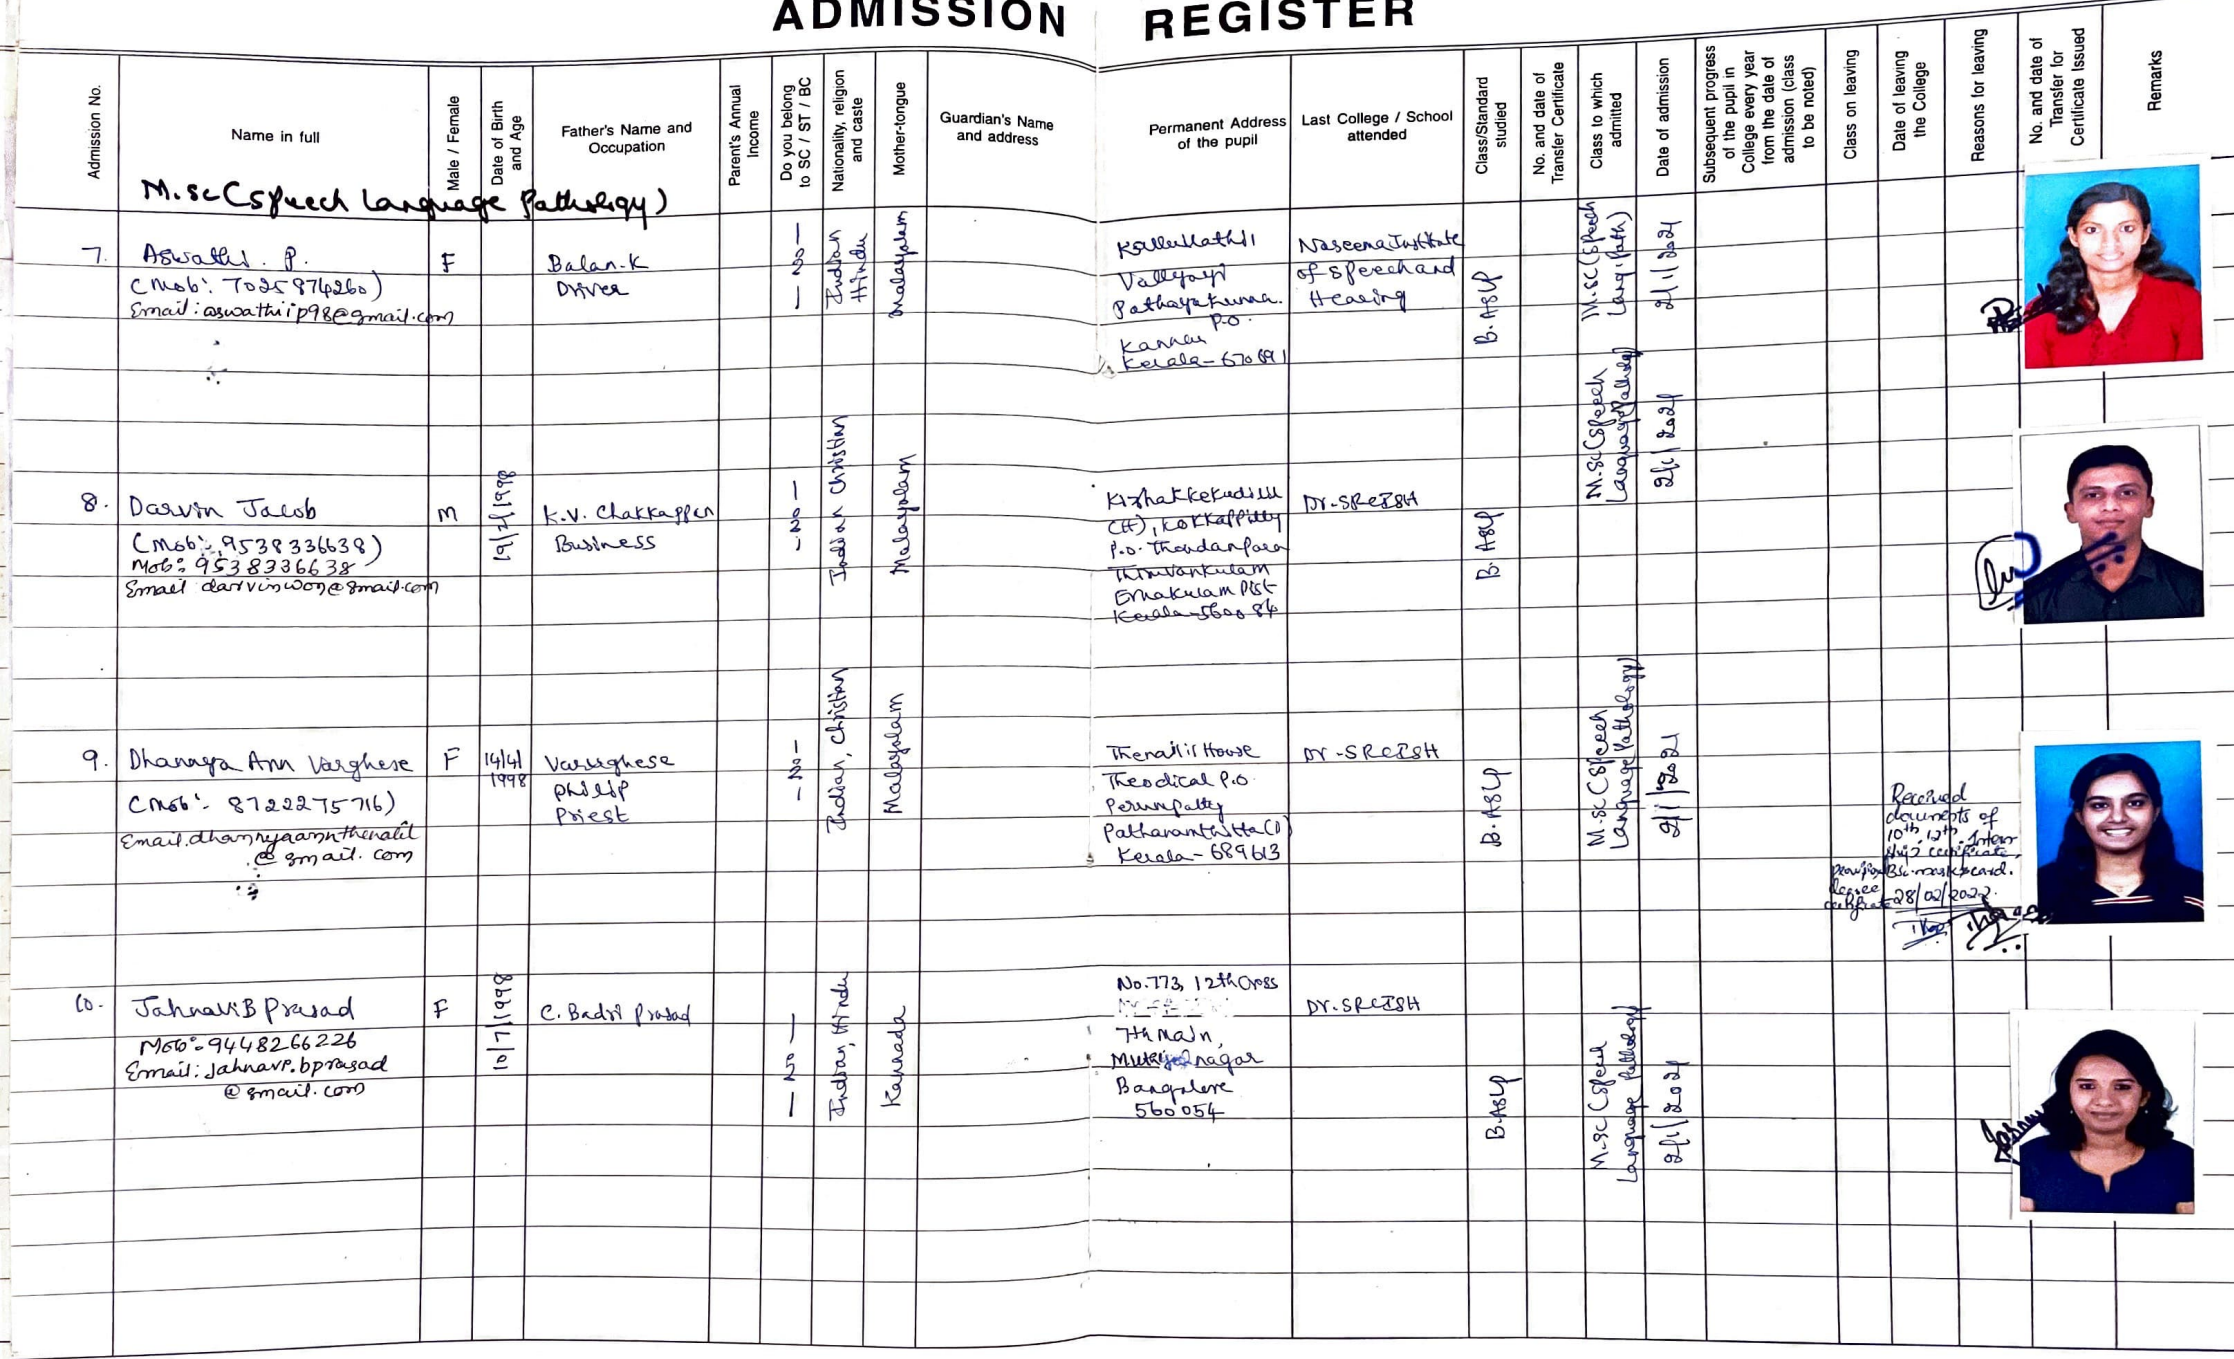 ADMISSION REGISTER
Admission No.
Name in full
Male / Female
Date of Birth
and Age
Father's Name and
Occupation
Parent's Annual
Income
Do you belong
to SC / ST / BC
Nationality, religion
and caste
Mother-tongue
Guardian's Name
and address
Permanent Address
of the pupil
Last College / School
attended
Class/Standard
studied
No. and date of
Transfer Certificate
Class to which
admitted
Date of admission
Subsequent progress
of the pupil in
College every year
from the date of
admission (class
to be noted)
Class on leaving
Date of leaving
the College
Reasons for leaving
No. and date of
Transfer for
Certificate Issued
Remarks
M.sc (Speech Language Pathology)
7.
Aswathi. P.
(Mob: 7025874260)
Email: aswathiip98@gmail.com
F
Balan.K
Driver
Indian
Hindu
Malayalam
Vallyayi
Pathayakunna.
P.O.
Kannur
Kerala - 670691
Naseema Institute
of Speech and
Hearing
B.ASLP
M.sc (Speech
Lang. Path)
2/1/2021
8.
Darvin Jacob
(Mob: 9538336638)
Mob: 9538336638
Email darvinwon@gmail.com
M
19/2/1998
K.V. Chakkappan
Business
Indian Christian
Malayalam
Kizhakkekudilil
(H), Kokkappilly
P.O. Thandanpara
Thiruvankulam
Ernakulam Dist
Kerala-560084
Dr. SRCISH
B.ASLP
M.sc (Speech
Language Pathology)
2/1/2021
9.
Dhannya Ann Varghese
(Mob: 8722275716)
Email.dhannyaannthenalil
@gmail.com
F
14/4/
1998
Varughese
Philip
Priest
Indian, Christian
Malayalam
Thenalil House
Theodical P.O
Perumpatty
Kerala - 689613
Dr. SRCISH
B.ASLP
M.sc (Speech
Language Pathology)
2/1/2021
Received
documents of
10th, 12th, Intern
ship certificate,
Bsc. marks card.
degree
certificate
28/02/2022.
10.
Jahnavi B Prasad
Mob: 9448266226
Email: Jahnavi.bprasad
@gmail.com
F
10/7/1998
C. Badri Prasad
Indian, Hindu
Kannada
No.773, 12th Cross
7th main,
Bangalore
560054
Dr. SRCISH
B.ASLP
M.sc (Speech
Language Pathology)
2/1/2021